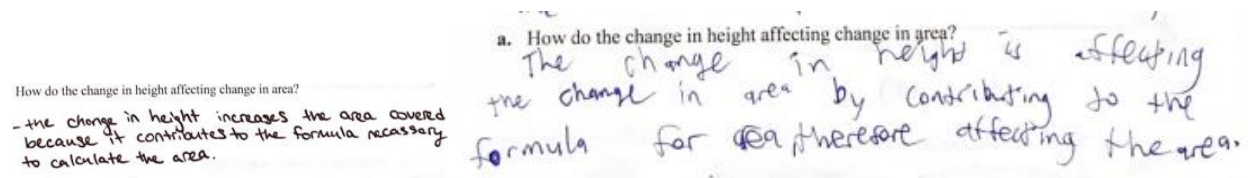 How do the change in height affecting change in area?
- the change in height increases the area covered
because it contributes to the formula necassary
to calculate the area.
a. How do the change in height affecting change in area?
The change in height is affecting
the change in area by contributing to the
formula for area therefore affecting the area.